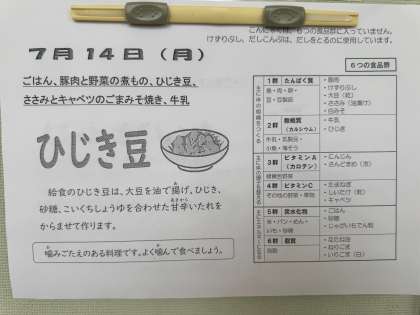 こんにゃくは、6つの食品群に入っていません。
けずりぶし、だしこんぶは、だしをとるのに使用しています。
7月14日（月）
ごはん、豚肉と野菜の煮もの、ひじき豆、
ささみとキャベツのごまみそ焼き、牛乳
ひじき豆
給食のひじき豆は、大豆を油で揚げ、ひじき、
砂糖、こいくちしょうゆを合わせた甘辛いたれを
からませて作ります。
噛みごたえのある料理です。よく噛んで食べましょう。
6つの食品群
1群 たんぱく質
魚・肉・卵・
豆・豆製品
・豚肉
・けずりぶし
・大豆（乾）
・ささみ（油漬け）
・白みそ
2群 無機質
（カルシウム）
牛乳・乳製品・
小魚・海そう
・牛乳
・ひじき
3群 ビタミンA
（カロチン）
緑黄色野菜
・にんじん
・さんどまめ（冷）
4群 ビタミンC
その他の野菜・果物
・たまねぎ
・しいたけ（乾）
・キャベツ
5群 炭水化物
米・パン・めん・
いも・砂糖
・ごはん
・砂糖
・じゃがいもでん粉
6群 脂質
油脂
・なたね油
・ねりごま
・いりごま（白）